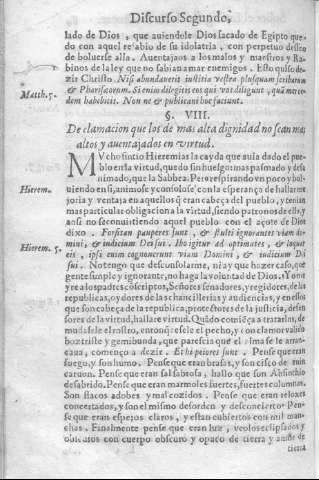 Discurso Segundo,
lado de Dios, que auiendele Dios sacado de Egipto que-
do con aquel resabio de su idolatria, con perpetuo desseo
de boluerse alla. Auentajaos a los malos y maestros y Ra-
binos de la ley que no sabian amar enemigos. Esto quiso de-
zir Christo. Nisi abundauerit iustitia vestra plusquam scribarum
& Pharisæorum. Si enim diligitis eos qui vos diligunt, quam merce-
Matth. 5.
dem habebitis. Non ne & publicani hoc faciunt.
§. VIII.
Declamacion que los de mas alta dignidad no sean mas
altos y auentajados en virtud.
MVcho sintio Hieremias la cayda que auia dado el pue-
blo en la virtud, quedo sin huelgo mas pasmado y desa
nimado, que la Sabbea. Pero respirando vn poco y bol-
Hierem.
uiendo en si, animose y consolose con la esperança de hallar me
joria y ventaja en aquellos q̃ eran cabeça del pueblo, y tenian
mas particular obligacion a la virtud, siendo patronos de ella, y
assi no consintiendo aquel pueblo con el açote de Dios
dixo. Forsitan pauperes sunt, & stulti ignorantes viam Do-
Hierem. 5.
mini, & iudicium Dei sui. Ibo igitur ad optimates, & loquar
eis, ipsi enim cognouerunt viam Domini, & iudicium Dei
sui. No tengo que desconsolarme, ni ay que hazer caso, que
gente simple y ignorante, no haga la voluntad de Dios. Yo me
yre a los padres cõscriptos, Señores senadores, y regidores, de las
republicas, oydores de las chancillerias y audiencias, y en ellos
que son cabeça de la republica, protectores de la justicia, defen
sores de la virtud, hallare virtud. Quãdo començo a tratarlos, de
mudasele el rostro, enronq̃cesele el pecho, y con clamor valido
boz triste y gemibunda, que parecia que el alma se le arran-
caua, començo a dezir. Et hi peiores sunt. Pense que eran
fuego, y son humo. Pense que eran brasas, y son cisco de ruin
caruon. Pense que eran sal sabrosa, hallo que son Absinthio
desabrido. Pense que eran marmoles fuertes, fuertes columnas,
Son flacos adobes y mal cozidos. Pense que eran reloxes
concertados, y son el mismo desorden y desconcierto. Pen-
se que eran espejos claros, y estan cubiertos con mil man-
chas. Finalmente pense que eran luz, veolos eclipsados y
obscuros con cuerpo obscuro y opaco de tierra y amor de
tierra